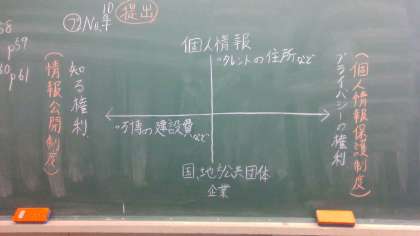 p59
p61
No.
提出
個人情報
タレントの住所など
知る権利
(情報公開制度)
万博の建設費など
国、地方公共団体
企業
プライバシーの権利
(個人情報保護制度)